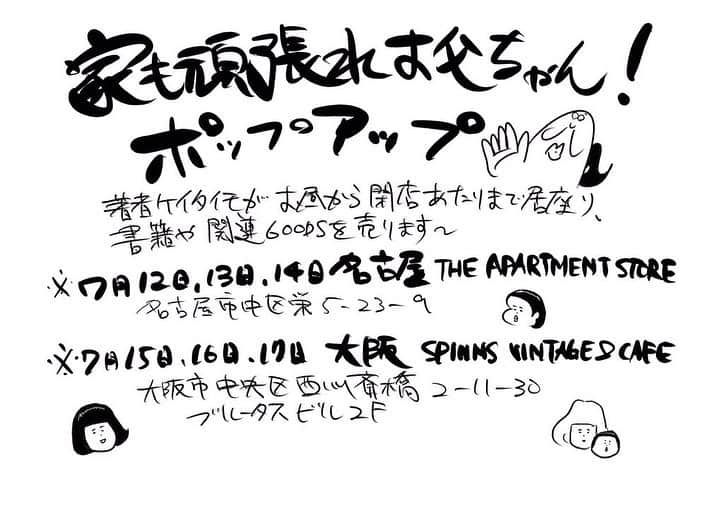 家も頑張れお父ちゃん!
ポップアップ
著者ケイタイモがお昼から閉店あたりまで居座り、
書籍や関連GOODSを売ります〜
※7月12日、13日、14日 名古屋 THE APARTMENT STORE
名古屋市中区栄5-23-9
※7月15日、16日、17日 大阪 SPINNS VINTAGE&CAFE
大阪市中央区西心斎橋2-11-30
ブルータスビル2F